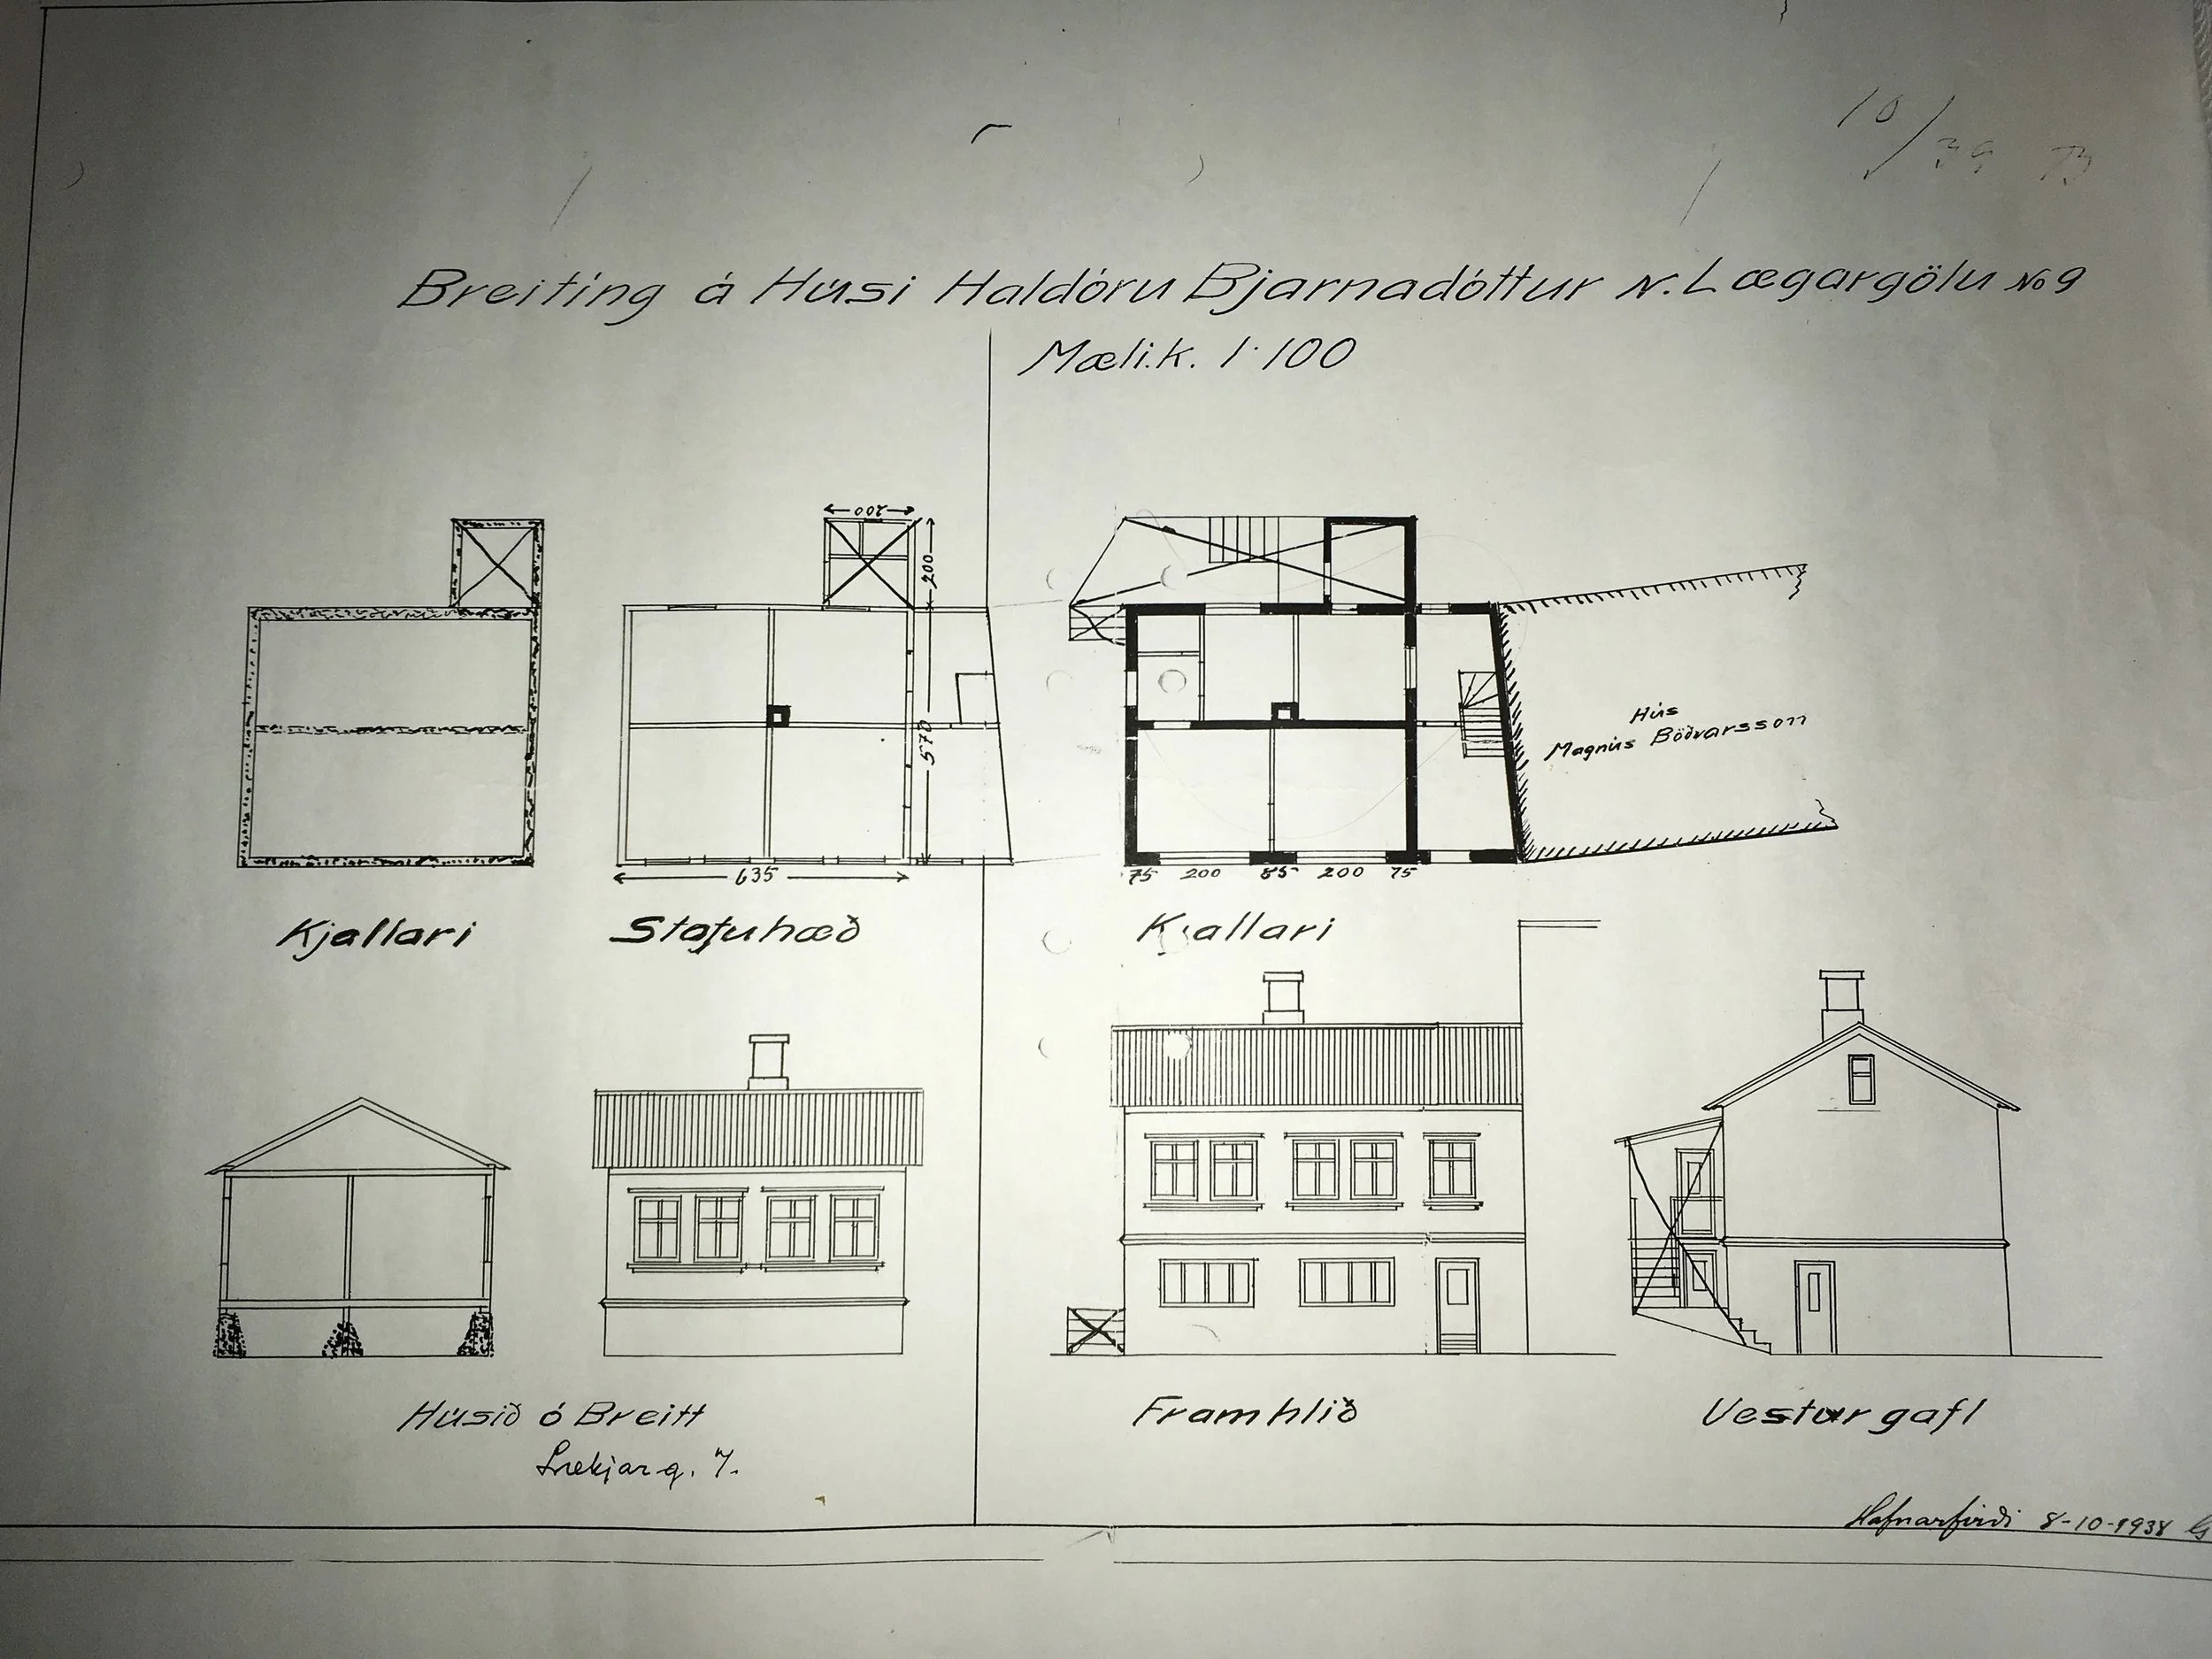 10/39 73
Breiting á Húsi Haldóru Bjarnadóttur N. Lægargölu No 9
Mæli.k. 1:100
200
200
570
635
Hús
Magnús Böðvarsson
75 200 85 200 75
Kjallari
Stofuhæð
Kjallari
Húsið ó Breitt
Lækjarg. 7.
Framhlið
Vesturgafl
Hafnarfirði 8-10-1938